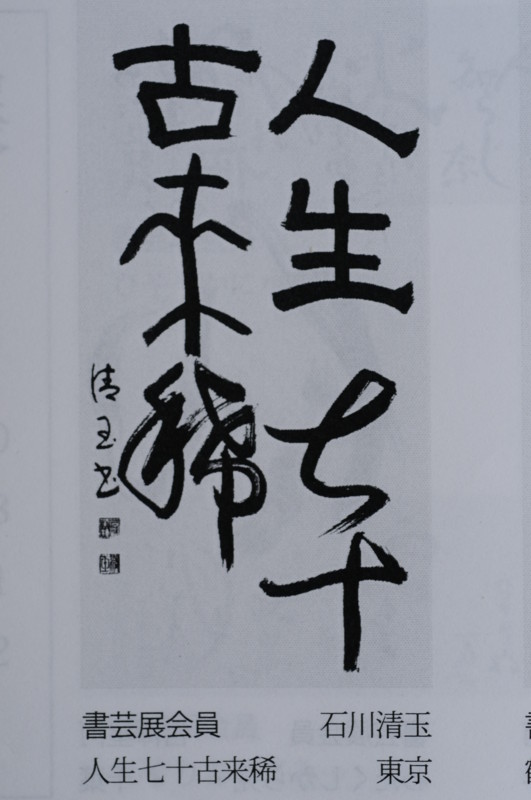 人生七十
古来稀
清玉書
書芸展会員
石川清玉
人生七十古来稀
東京